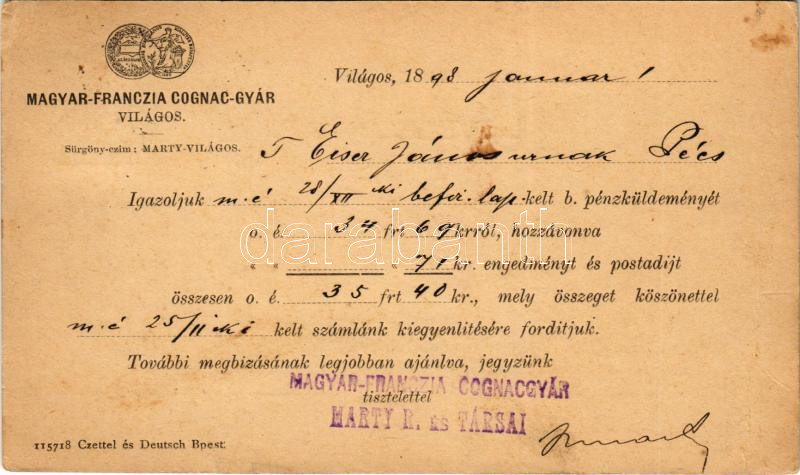 Világos, 1898 januar 1
MAGYAR-FRANCZIA COGNAC-GYÁR
VILÁGOS.
Sürgöny-czim: MARTY-VILÁGOS.
T Eiser János urnak Pécs
Igazoljuk m. é 28/XII ki befiz. lap kelt b. pénzküldeményét
o. é. 34 frt 69 krról, hozzávonva
« « « 71 kr. engedményt és postadijt
összesen o. é. 35 frt 40 kr., mely összeget köszönettel
m. é 25/II ki kelt számlánk kiegyenlitésére forditjuk.
További megbizásának legjobban ajánlva, jegyzünk
tisztelettel
MAGYAR-FRANCZIA COGNACGYÁR
MARTY R. és TÁRSAI
115718 Czettel és Deutsch Bpest.
darabanth